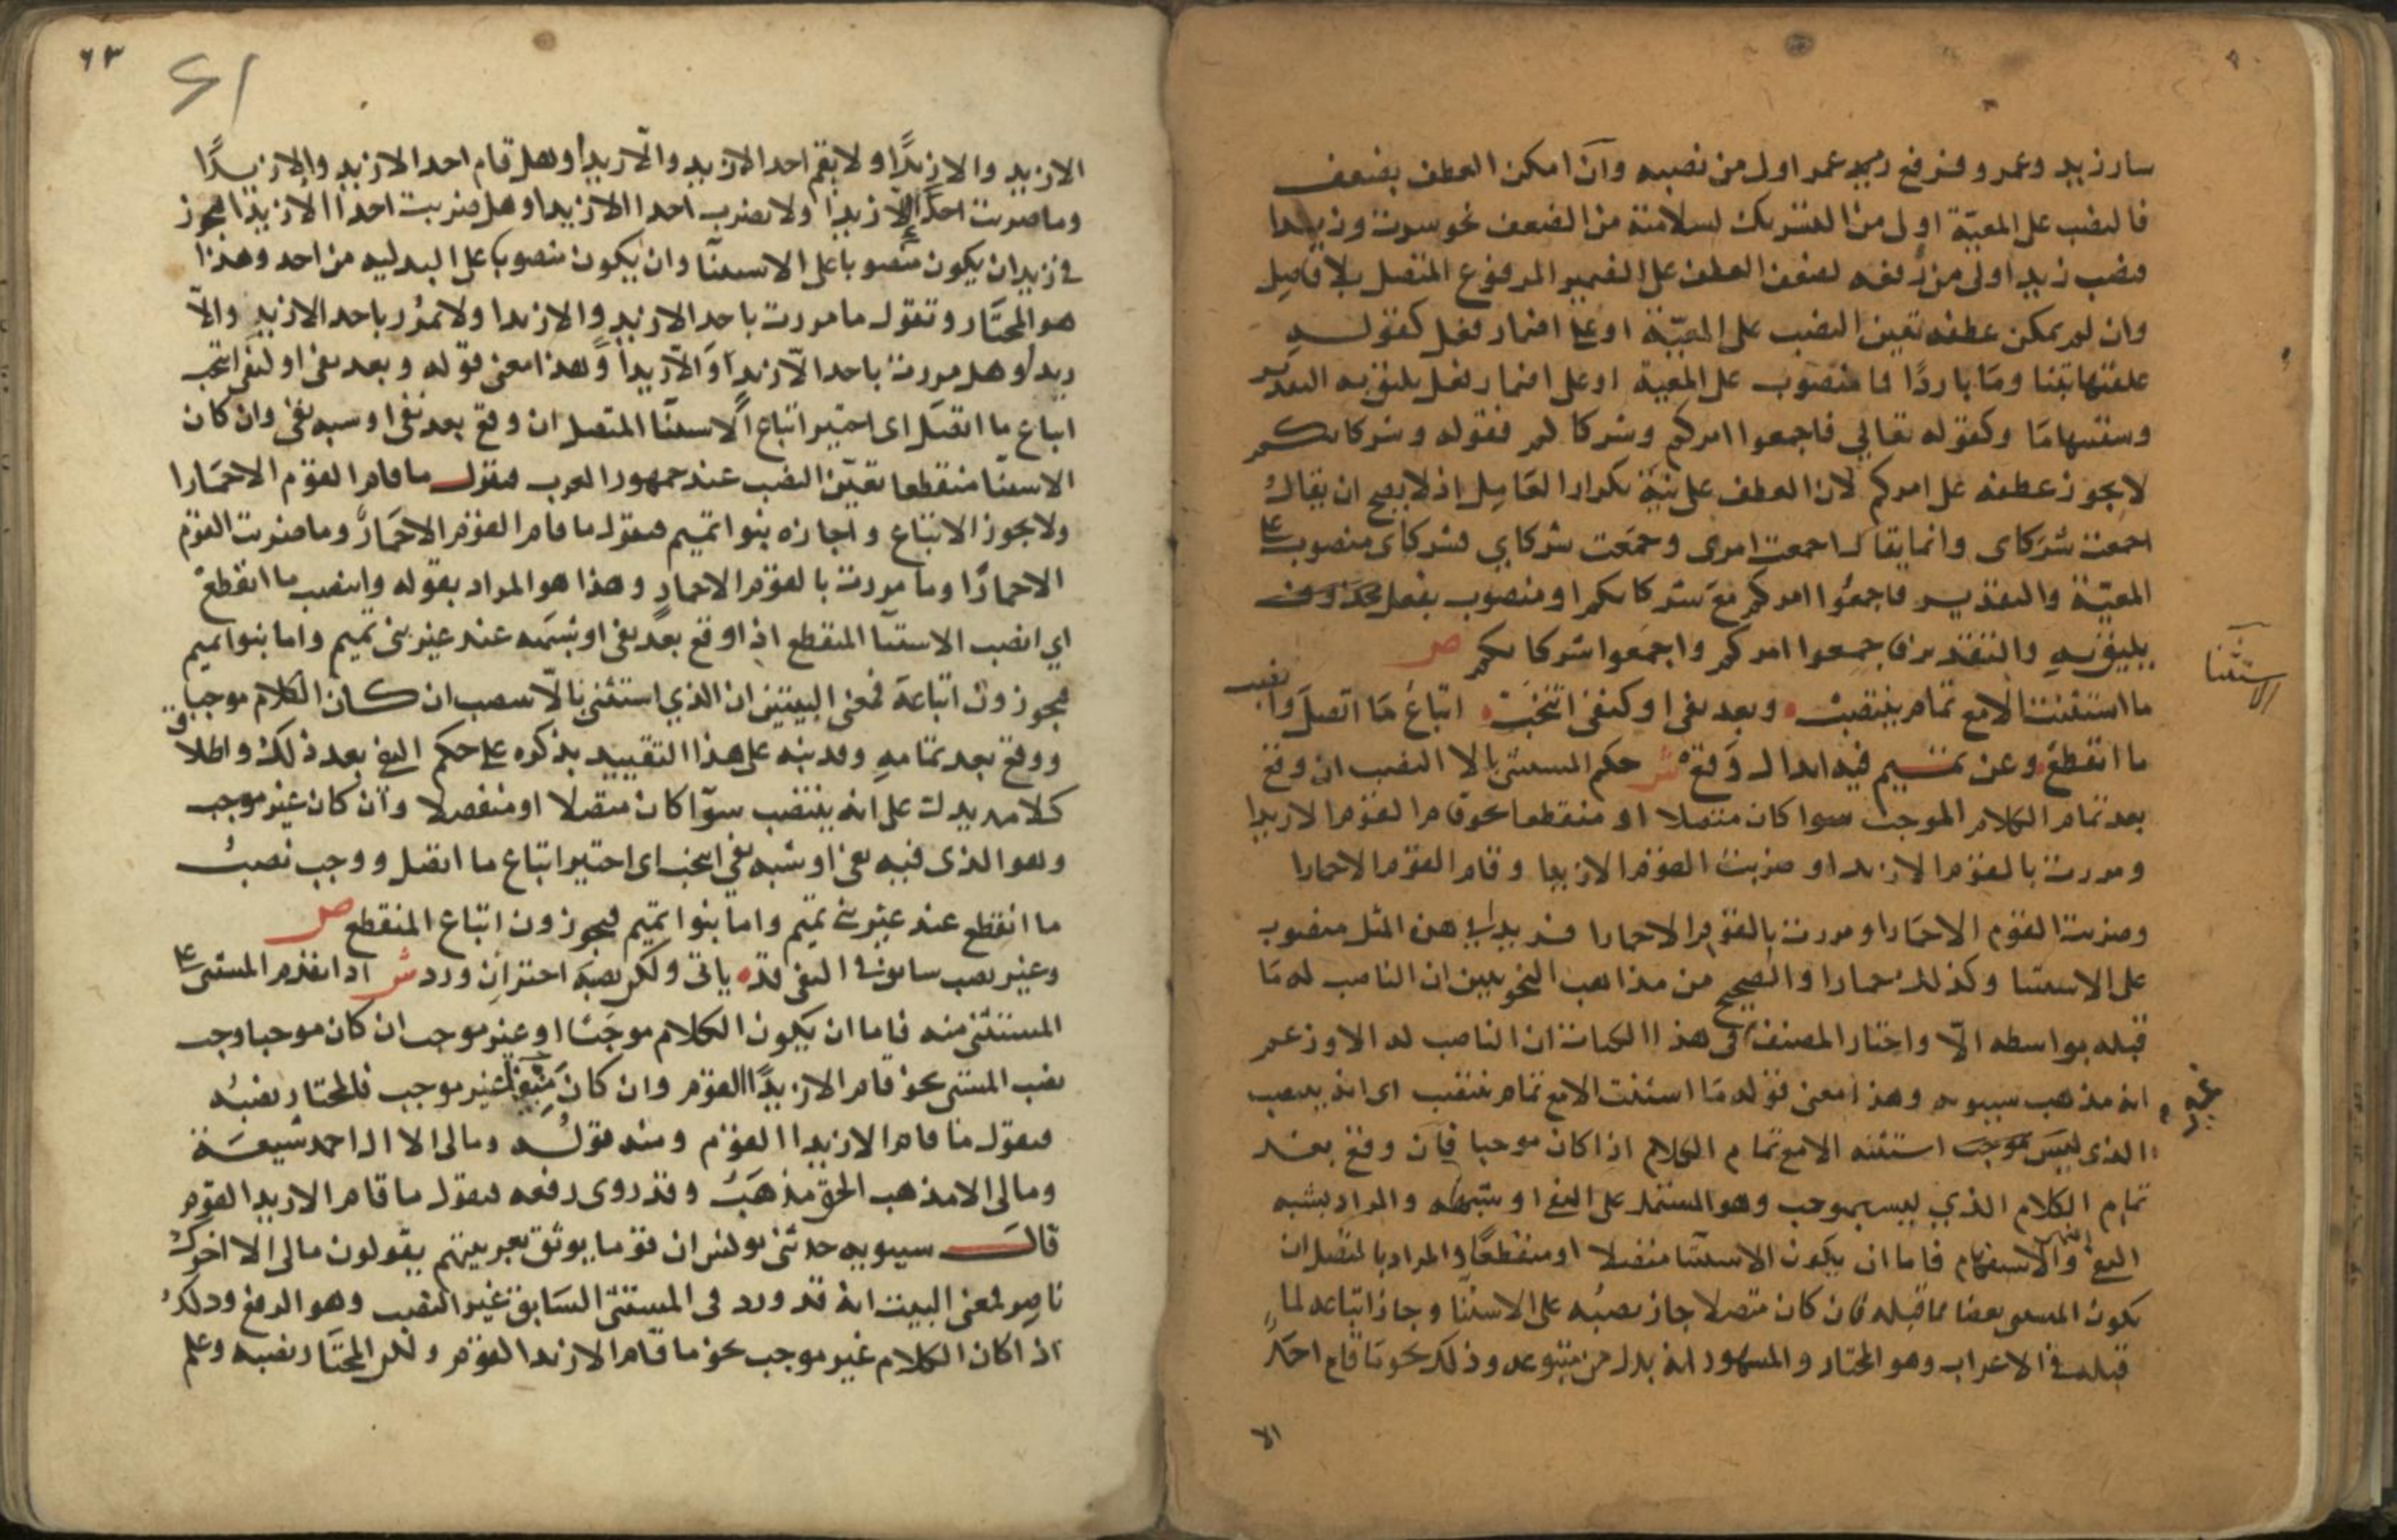 سار زيد وعمرو فترفع عمر اولى من نصبه وان امكن العطف بضعف
فالنصب على المعية اولى من التشريك لسلامته من الضعف نحو سرت وزيدا
فنصب زيد اولى من رفعه لضعف العطف على الضمير المرفوع المتصل بلا فاصل
وان لم يمكن عطفه تعين النصب على المعية او على اضمار فعل كقوله
علفتها تبنا وماً باردًا فما منصوب على المعية او على اضمار فعل يليق به التقدير
وسقيتها ما وكقوله تعالى فاجمعوا امركم وشركاكم فقوله وشركاكم
لا يجوز عطفه على امركم لان العطف على نية تكرار العامل اذ لا يصح ان يقال
اجمعت شركاى وانما يقال اجمعت امرى وجمعت شركاي فشركاى منصوب على
المعية والتقدير فاجمعوا امركم مع شركاكم او منصوب بفعل محذوف
يليق به والتقدير فاجمعوا امركم واجمعوا شركاكم ص
الاستثنا
ما استثنت الا مع تمام ينتصب وبعد نفى او كنفى انتخب اتباع ما اتصل وانصب
ما انقطع وعن تميم فيه ابدال وقع ش حكم المستثنى بالا النصب ان وقع
بعد تمام الكلام الموجب سوا كان متصلا او منقطعا نحو قام القوم الا زيدا
ومررت بالقوم الا زيدا وضربت القوم الا زيدا وقام القوم الا حمارا
وضربت القوم الا حمارا ومررت بالقوم الا حمارا فزيدا في هذه المثل منصوب
على الاستثنا وكذلك حمارا والصحيح من مذاهب النحويين ان الناصب له ما
قبله بواسطه الا واختار المصنف في غير هذا الكتاب ان الناصب له الا وزعم
انه مذهب سيبويه وهذا معنى قوله ما استثنت الا مع تمام ينتصب اى انه ينتصب
الذى ليس بموجب استثنه الا مع تمام الكلام اذا كان موجبا فان وقع بعد
تمام الكلام الذي ليس بموجب وهو المشتمل على النفى او شبهه والمراد بشبه
النفى النهى والاستفهام فاما ان يكون الاستثنا متصلا او منقطعا والمراد بالمتصل ان
يكون المستثنى بعضا مما قبله فان كان متصلا جاز نصبه على الاستثنا وجاز اتباعه لما
قبله فى الاعراب وهو المختار والمشهور انه بدل من متبوعه وذلك نحو ما قام احد
الا
٦٣
61
الا زيد والا زيدًا ولا يقم احد الا زيد والا زيدا وهل قام احد الا زيد والا زيدًا
وما ضربت احدا الا زيدا ولا تضرب احدا الا زيدا وهل ضربت احدا الا زيدا فيجوز
فى زيدا ان يكون منصوبا على الاستثنا وان يكون منصوبا على البدليه من احد وهذا
هو المختار وتقول ما مررت باحد الا زيد والا زيدا ولا تمرر باحد الا زيد والا
زيدا وهل مررت باحد الا زيد والا زيدا وهذا معنى قوله وبعد نفى او كنفى انتخب
اتباع ما اتصل اى اختير اتباع الاستثنا المتصل ان وقع بعد نفى او شبه نفى وان كان
الاستثنا منقطعا تعين النصب عند جمهور العرب فتقول ما قام القوم الا حمارا
ولا يجوز الاتباع واجازه بنوا تميم فتقول ما قام القوم الا حمارٌ وما ضربت القوم
الا حمارًا وما مررت بالقوم الا حمارٍ وهذا هو المراد بقوله وانصب ما انقطع
اي انصب الاستثنا المنقطع اذا وقع بعد نفى او شبهه عند غير بنى تميم واما بنوا تميم
فيجوزون اتباعه فمعنى البيتين ان الذي استثنى بالا ينتصب ان كان الكلام موجبا
ووقع بعد تمامه وقد نبه على هذا التقييد بذكره على حكم النفى بعد ذلك واطلاق
كلامه يدل على انه ينتصب سوآ كان متصلا او منفصلا وان كان غير موجب
وهو الذى فيه نفى او شبه نفى انتخب اى اختير اتباع ما اتصل ووجب نصب
ما انقطع عند غير بنى تميم واما بنوا تميم فيجوزون اتباع المنقطع ص
وغير نصب سابق فى النفى قد ياتى ولكن نصبه اختر ان ورد ش اذا تقدم المستثنى على
المستثنى منه فاما ان يكون الكلام موجبا او غير موجب ان كان موجبا وجب
نصب المستثنى نحو قام الا زيدًا القوم وان كان غير موجب فالمختار نصبه
فتقول ما قام الا زيدا القوم ومنه قوله ومالى الا ال احمد شيعة
ومالى الا مذهب الحق مذهب وقد روى رفعه فتقول ما قام الا زيد القوم
قال سيبويه حدثنى يونس ان قوما يوثق بعربيتهم يقولون مالى الا اخوك
ناصر فمعنى البيت انه قد ورد فى المستثنى السابق غير النصب وهو الرفع وذلك
اذا كان الكلام غير موجب نحو ما قام الا زيد القوم ولكن المختار نصبه وعلم